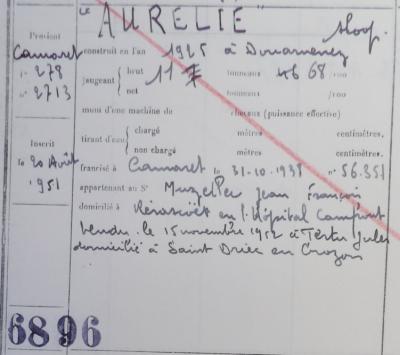 "AURELIE" Sloop.
Provient
Camaret
n° 278
n° 2713
construit en l'an 1925 à Douarnenez
jaugeant brut 11 tonneaux 68 /100
net tonneaux /100
muni d'une machine de chevaux (puissance effective)
tirant d'eau chargé mètres centimètres.
non chargé mètres centimètres.
Inscrit
le 20 Août
1951
francisé à Camaret le 31-10-1938 n° 56.351
appartenant au Sr Jean François
domicilié à en l'Hôpital Camfrout
vendu le 15 novembre 1952 à Jules
domicilié à Saint Driec en Crozon
6896